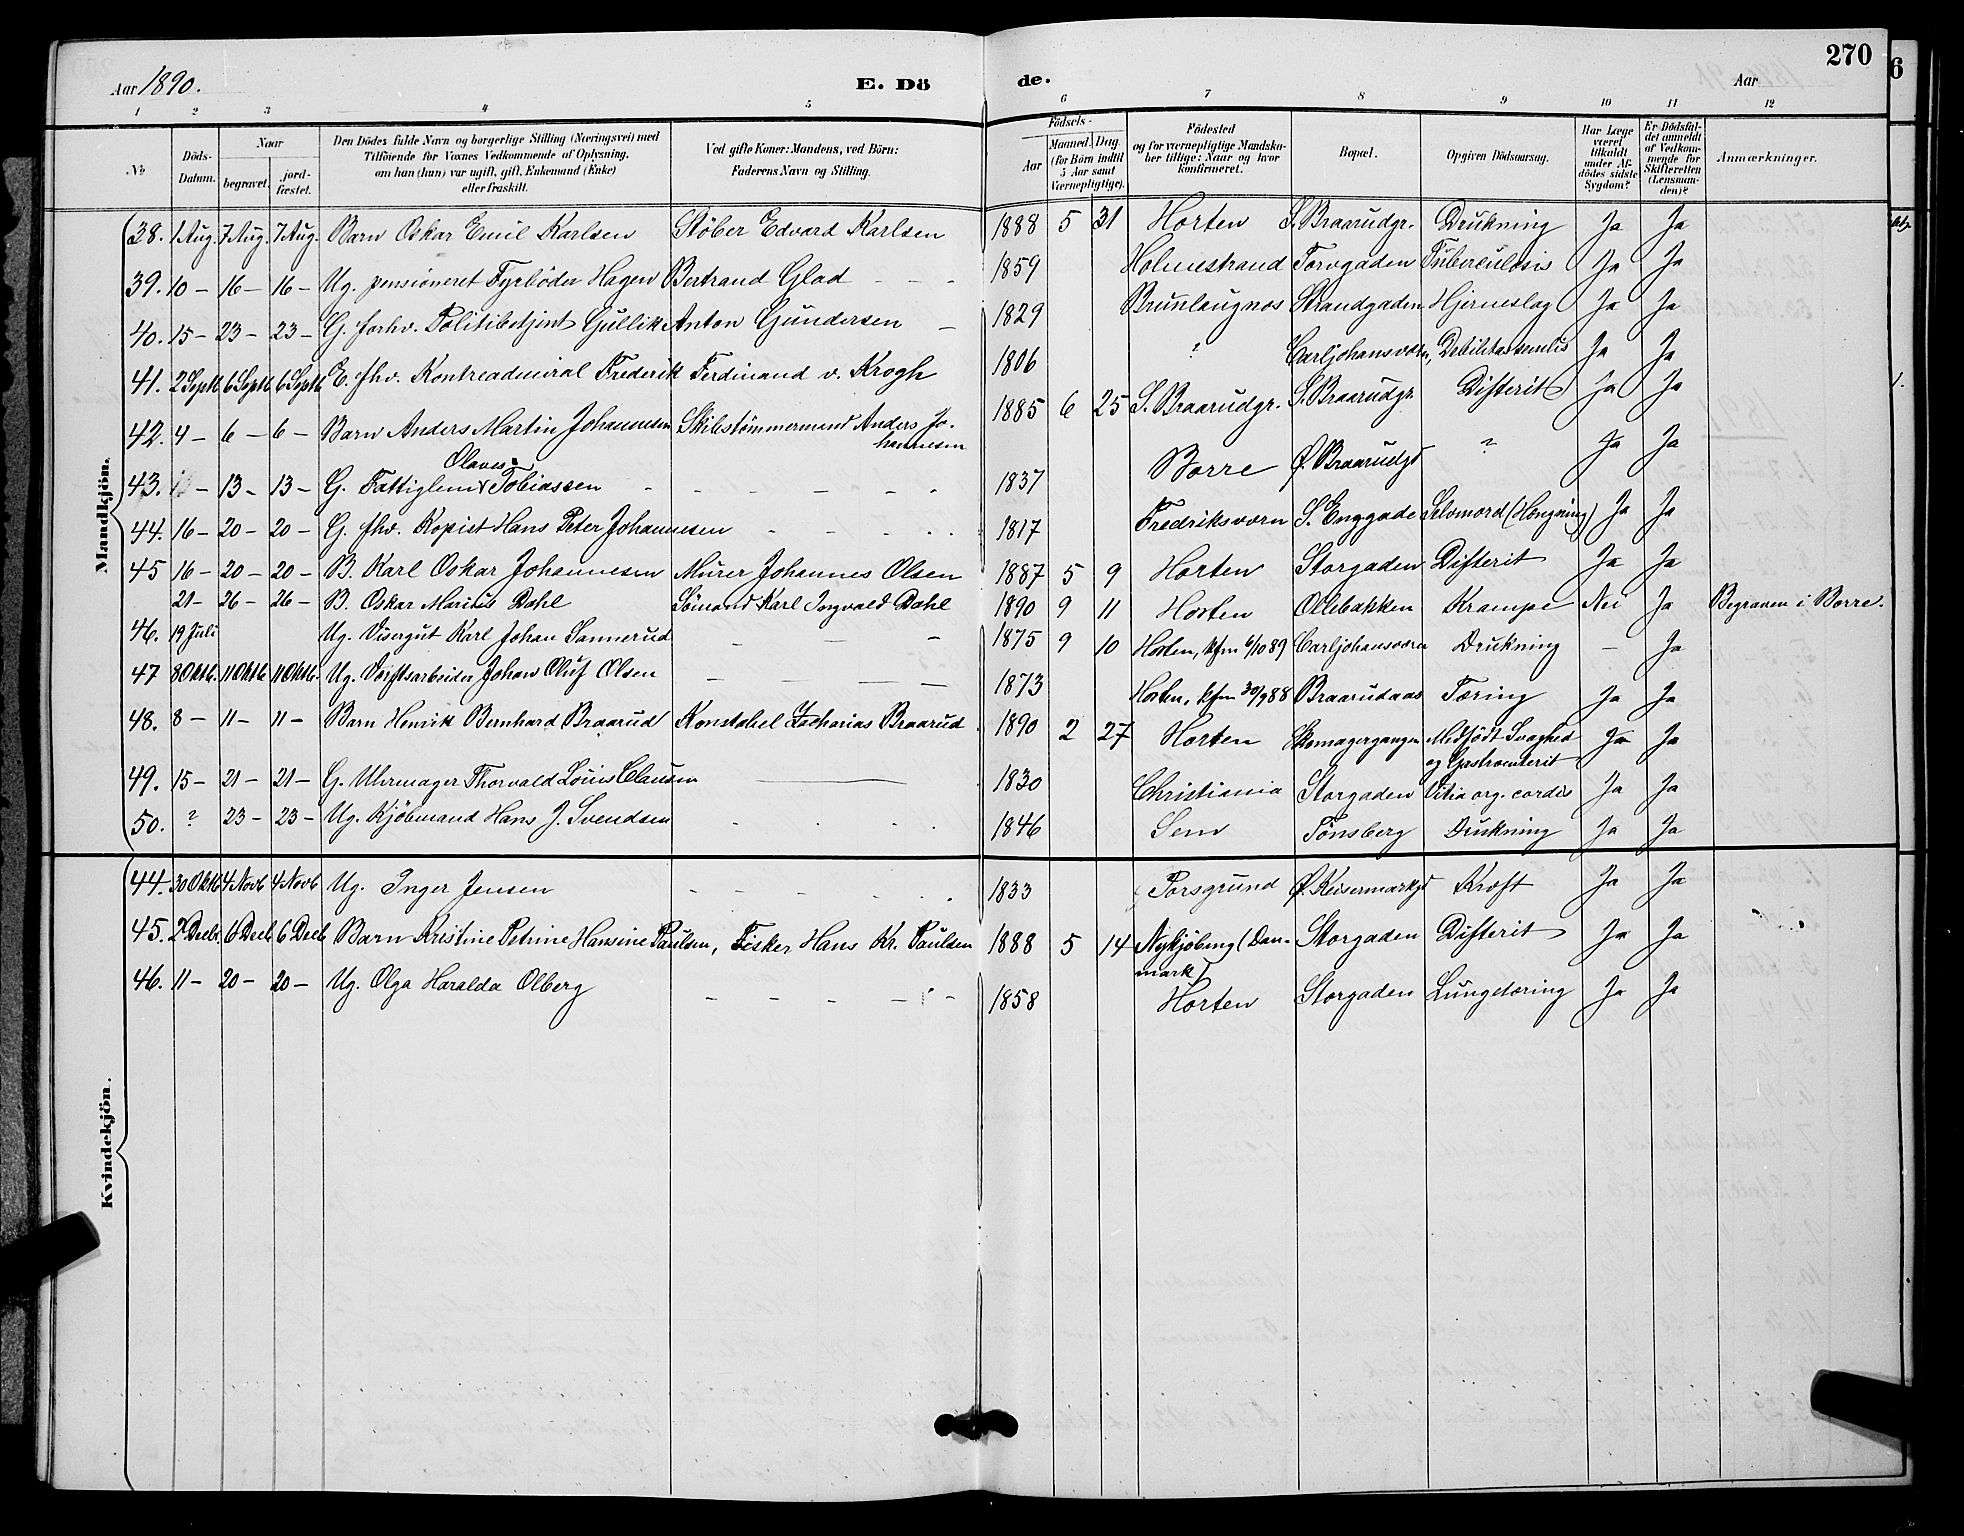 270
6
Aar 1890.
E. Dö
de.
Aar
1 2 3 4 5 6 7 8 9 10 11 12
№
Döds-Datum.
Naar
begravet.
jord-fæstet.
Den Dödes fulde Navn og borgerlige Stilling (Næringsvei) med
Tilföiende for Voxnes Vedkommende af Oplysning,
om han (hun) var ugift, gift, Enkemand (Enke)
eller fraskilt.
Ved gifte Koner: Mandens, ved Börn:
Faderens Navn og Stilling.
Födsels-
Aar
Maaned. Dag
(for Börn indtil
5 Aar samt
Værnepligtige).
Födested
og for værnepligtige Mandska-
ber tillige: Naar og hvor
konfirmeret.
Bopæl.
Opgiven Dödsaarsag.
Har Læge
været
tilkaldt
under Af-
dödes sidste
Sygdom?
Er Dödsfal-
det anmeldt
af Vedkom-
mende for
Skifteretten
(Lensman-
den)?
Anmærkninger.
Mandkjön.
38. 1 Aug. 7 Aug. 7 Aug. Barn Oskar Emil Karlsen Støber Edvard Karlsen 1888 5 31 Horten S. Braarudgr. Drukning Ja Ja
39. 10 – 16 – 16 – Ug. pensioneret Fyrbøder Hagen Bertrand Glad 1859 Holmestrand Torvgaden Tuberculosis Ja Ja
40. 15 – 23 – 23 – G. forhv. Politibetjent Gullik Anton Gundersen 1829 Brunlaugnæs Strandgaden Hjerneslag Ja Ja
41. 2 Septb 6 Septb 6 Septb E. fhv. Kontreadmiral Frederik Ferdinand v. Krogh 1806 ? Carljohansværn, Debilitas senilis Ja Ja
42. 4 – 6 – 6 – Barn Anders Martin Johannesen Skibstømmermand Anders Jo-
hannesen 1885 6 25 S. Braarudgr. S. Braarudgr. Difterit Ja Ja
43. – 13 – 13 – G. Fattiglem Olaves Tobiassen 1837 Borre Ø. Braarudgd ? Ja Ja
44. 16 – 20 – 20 – G. fhv. Kopist Hans Peter Johannesen 1817 Fredriksværn S. Enggade Selvmord (Hængning) Ja Ja
45 16 – 20 – 20 – B. Karl Oskar Johannesen Murer Johannes Olsen 1887 5 9 Horten Storgaden Difterit Ja Ja
21 – 26 – 26 – B. Oskar Marius Dahl Sømand Karl Ingvald Dahl 1890 9 11 Horten Ollebakken Krampe Nei Ja Begraven i Borre.
46. 19 Juli Ug. Visergut Karl Johan Sannerud 1875 9 10 Horten, kfm 6/10 89 Carljohansværn Drukning – Ja
47 8 Oktb. 11 Oktb 11 Oktb. Ug. Værftsarbeider Johan Oluf Olsen 1873 Horten, kfm 30/9 88 Braarudaas Tæring Ja Ja
48. 8 – 11 – 11 – Barn Henrik Bernhard Braarud Konstabel Zacharias Braarud 1890 2 27 Horten Skomagergangen Medfødt Svaghed
og Gastroenterit Ja Ja
49. 15 – 21 – 21 – G. Uhrmager Thorvald Louis Clausen 1830 Christiania Storgaden Vitia org. cordis Ja Ja
50. ? 23 – 23 – Ug. Kjøbmand Hans J. Svendsen 1846 Sem Tønsberg Drukning Ja Ja
Kvindekjön.
44. 30 Oktb 4 Novb 4 Novb Ug. Inger Jensen 1833 Porsgrund Ø. Keisermarkgd Kræft Ja Ja
45. 2 Decb. 6 Decb 6 Decb Barn Kristine Petrine Hansine Paulsen, Fisker Hans Kr. Paulsen 1888 5 14 Nykjøbing (Dan-
mark) Storgaden Difterit Ja Ja
46. 11 – 20 – 20 – Ug. Olga Haralda Olberg 1858 Horten Storgaden Lungetæring Ja Ja